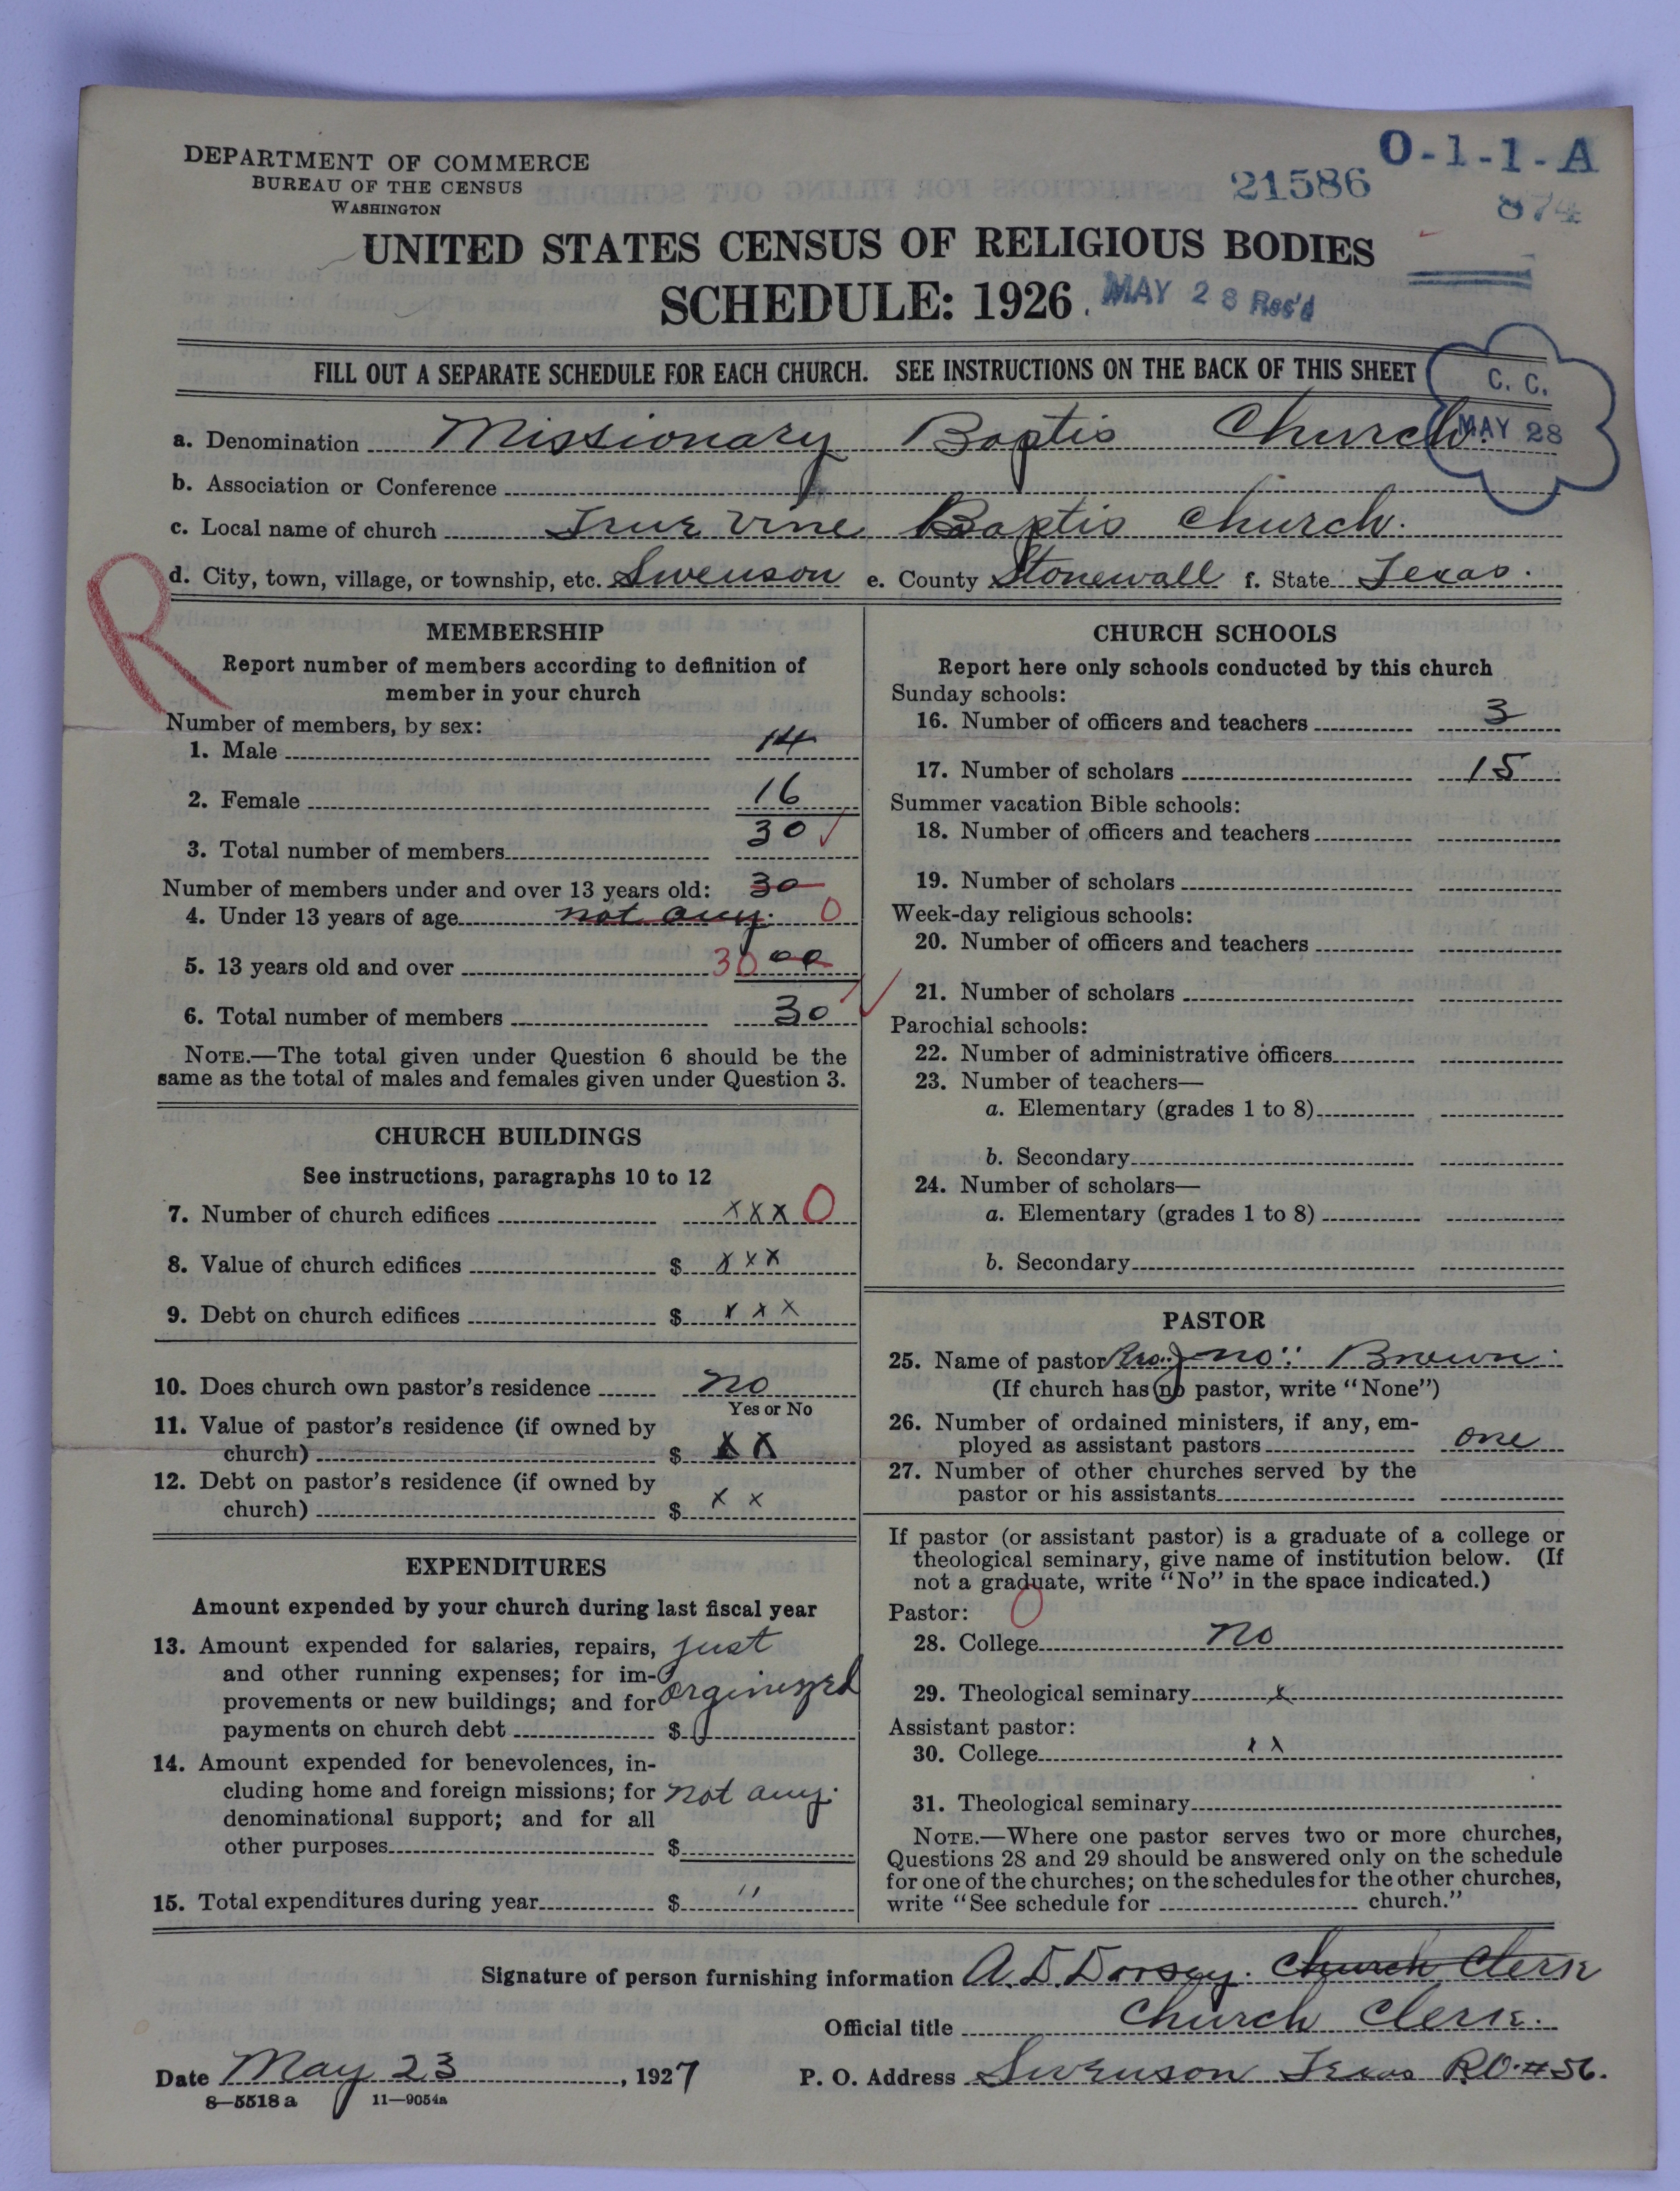 DEPARTMENT OF COMMERCE
BUREAU OF THE CENSUS
WASHINGTON
O-1-1-A
21586
874
UNITED STATES CENSUS OF RELIGIOUS BODIES
SCHEDULE: 1926
MAY 28 Rec'd
FILL OUT A SEPARATE SCHEDULE FOR EACH CHURCH. SEE INSTRUCTIONS ON THE BACK OF THIS SHEET
C. C.
MAY 28
a. Denomination Missionary Baptis Church.
b. Association or Conference
c. Local name of church True Vine Baptis church.
d. City, town, village, or township, etc. Swenson e. County Stonewall f. State Texas.
R
MEMBERSHIP
Report number of members according to definition of
member in your church
Number of members, by sex:
1. Male 14
2. Female 16
3. Total number of members 30
Number of members under and over 13 years old: 30
4. Under 13 years of age not any. 0
5. 13 years old and over 30 00
6. Total number of members 30
NOTE.—The total given under Question 6 should be the
same as the total of males and females given under Question 3.
CHURCH BUILDINGS
See instructions, paragraphs 10 to 12
7. Number of church edifices xxx 0
8. Value of church edifices $ xxx
9. Debt on church edifices $ xxx
10. Does church own pastor's residence no
Yes or No
11. Value of pastor's residence (if owned by
church) $ xx
12. Debt on pastor's residence (if owned by
church) $ x x
EXPENDITURES
Amount expended by your church during last fiscal year
13. Amount expended for salaries, repairs, just
and other running expenses; for im-
provements or new buildings; and for orginizzed
payments on church debt $
14. Amount expended for benevolences, in-
cluding home and foreign missions; for not any.
denominational support; and for all
other purposes $
15. Total expenditures during year $ "
CHURCH SCHOOLS
Report here only schools conducted by this church
Sunday schools:
16. Number of officers and teachers 3
17. Number of scholars 15
Summer vacation Bible schools:
18. Number of officers and teachers
19. Number of scholars
Week-day religious schools:
20. Number of officers and teachers
21. Number of scholars
Parochial schools:
22. Number of administrative officers
23. Number of teachers—
a. Elementary (grades 1 to 8)
b. Secondary
24. Number of scholars—
a. Elementary (grades 1 to 8)
b. Secondary
PASTOR
25. Name of pastor Jno. Brown
(If church has no pastor, write "None")
26. Number of ordained ministers, if any, em-
ployed as assistant pastors one
27. Number of other churches served by the
pastor or his assistants
If pastor (or assistant pastor) is a graduate of a college or
theological seminary, give name of institution below. (If
not a graduate, write "No" in the space indicated.)
Pastor: 0
28. College no
29. Theological seminary x
Assistant pastor:
30. College x x
31. Theological seminary
NOTE.—Where one pastor serves two or more churches,
Questions 28 and 29 should be answered only on the schedule
for one of the churches; on the schedules for the other churches,
write "See schedule for church."
Signature of person furnishing information A. D. Dorsey. Church Clerk
Official title Church Clerk.
Date May 23, 1927 P. O. Address Swenson Texas #56.
8—5518 a 11—9054a